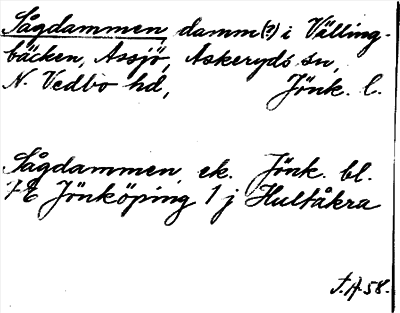 Sågdammen, damm(?) i Välling-
bäcken, Assjö, Askeryds sn,
N. Vedbo hd, Jönk. l.
Sågdammen ek. Jönk. bl.
7E Jönköping 1 j Hultåkra
T.A 58.